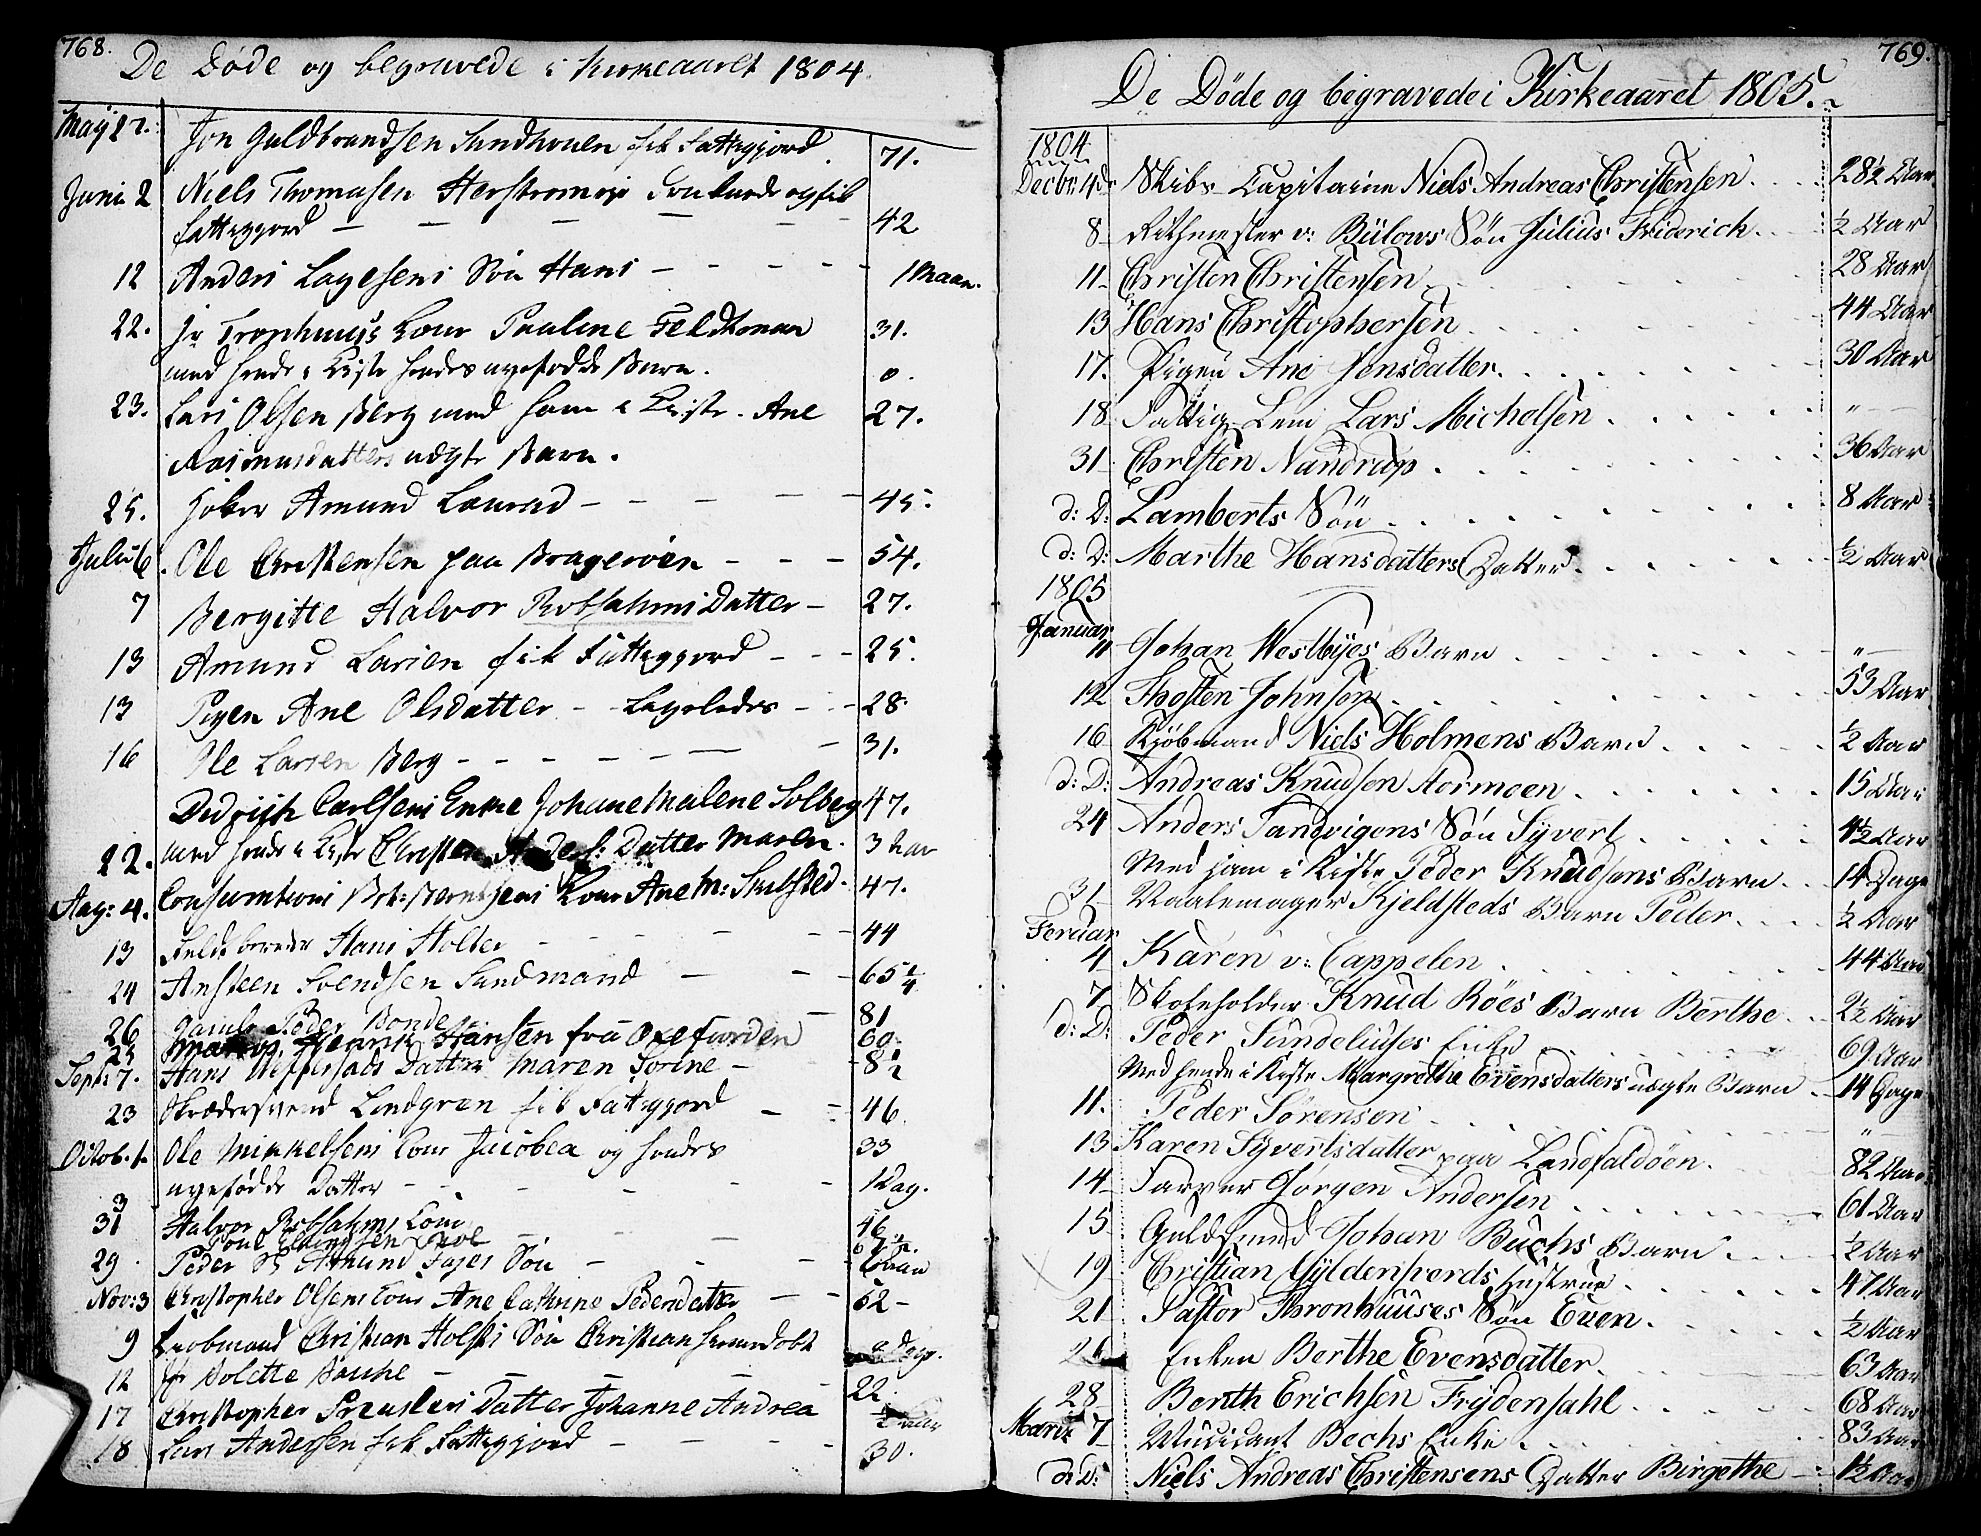 768.
De Døde og begravede i Kirkeaaret 1804.
May 27. Jon Guldbrandsen Sundhouen fik Fattigjord. 71.
Juni 2 Niels Thomasen Herstrømøe og fik
fattigjord — — — — 42
12 Anders Lagesens Søn Hans — — — — 1 Maan.
22. Hr Tronhuus's Kone Pauline Feldtman 31.
med hende i Kiste hendes nyefødde Barn. 0.
23. Lars Olsen Berg med ham i Kiste. Ane 27.
Rasmusdatters uægte Barn.
25. Amund — — — — 45.
Julii 6. Ole Christensen paa Bragerøen — — — 54.
7 Bergitte Halvor Robsahms Datter — 27.
13 Amund Larsen fik Fattigjord — — — 25.
13 Pigen Ane Olsdatter — Ligeledes — — 28.
16 Ole Larsen Berg — — — — — — 31.
Didrich Carlsens Enke Johane Malene Solberg 47.
22. med hende i Kiste Christen Anders: Datter Maren. 3 Aar
Aug: 4. Consumtions Bet: Berntsens Kone Ane M: Skibsted. 47.
13 Feldbereder Hans Holter — — — — 44
24 Ansteen Svendsen Sundmand — — — 65 1/4
26 Gamle Peder Bonde — 81
25 Henrik Hansen fra Oxefiorden 60.
Septr 7. Hans Datter Maren Sorine — 8 1/2
23 Skrædersvend Lindgren fik Fattigjord — — 46
Octob. 1. Ole Mikkelsens Kone Jacobea og hendes 33
nyefødde Datter — — — — 1 Dag.
31 Halvor Robsahms Kone 46
3 Poul
29. Peder Søn — — —
Nov: 3 Christopher Olsens Kone Ane Cathrine Pedersdatter — — 52 —
9 Kiøbmand Christian Holsts Søn Christian hiemmedøbt 8 Dage.
12 Jfr Bolette — — — — 22
17 Christopher Datter Johanne Andrea 1/2 Aar
18 Lars Andersen fik Fattigjord — — — — 30.
769.
De Døde og begravede i Kirkeaaret 1805.
1804
Decbr 4de Skibs Capitaine Niels Andreas Christensen. . . . 28½ Aar
8 Rithmester v: Bülows Søn Julius Friderich. . . ½ Aar
11 Christen Christensen . . . . 28 Aar
13 Hans Christophersen . . . . 44 Aar
17. Pigen Ane Jensdatter. . . . . 30 Aar
18 Fattig-Lem Lars Michelsen . . . . "
31 Christen Nandrup . . . . 36 Aar
d: D: Lamberts Søn . . . . 8 Aar
d: D: Marthe Hansdatters Datter. . . . ½ Aar
1805
Januar
11 Johan Westbyes Barn . . . . "
12 Thosten Johnsen . . . . 53 Aar
16 Kjöbmand Niels Holmens Barn . . . . ½ Aar
d: D: Andreas Knudsen Stormoen . . . . 15 Aar
24 Anders Tandvigens Søn Syvert . . . . 4½ Aar
Med ham i Kiste Peder Knudsens Barn . . 14 Dage
31 Maalemager Kjeldsteds Barn Peder. . . . ½ Aar
Feruar
4 Karen v: Cappelen . . . . 44 Aar
7 Skoleholder Knud Röes Barn Berthe . . . 2½ Aar
d: D: Peder Sundeliuses Enke . . . . 69 Aar
Med hende i Kiste Margrethe Evensdatters uægte Barn . 14 Dage
11. Peder Sörensen . . . . "
13 Karen Syvertsdatter paa Landfaldöen. . . . 82 Aar
14 Farver Jörgen Andersen . . . . 61 Aar
15 Guldsmed Johan Buchs Barn . . . . ½ Aar
19 Christian Gyldenpreds Hustrue . . . . 47 Aar
21 Pastor Thronhuuses Søn Even . . . . ½ Aar
26 Enken Berthe Evensdatter . . . . 63 Aar
28 Bernth Erichsen Frydensahl . . . . 68 Aar
Martz 7 Musicant Bechs Enke . . . . 83 Aar
d: D: Niels Andreas Christensens Datter Birgethe — 1½ Aar